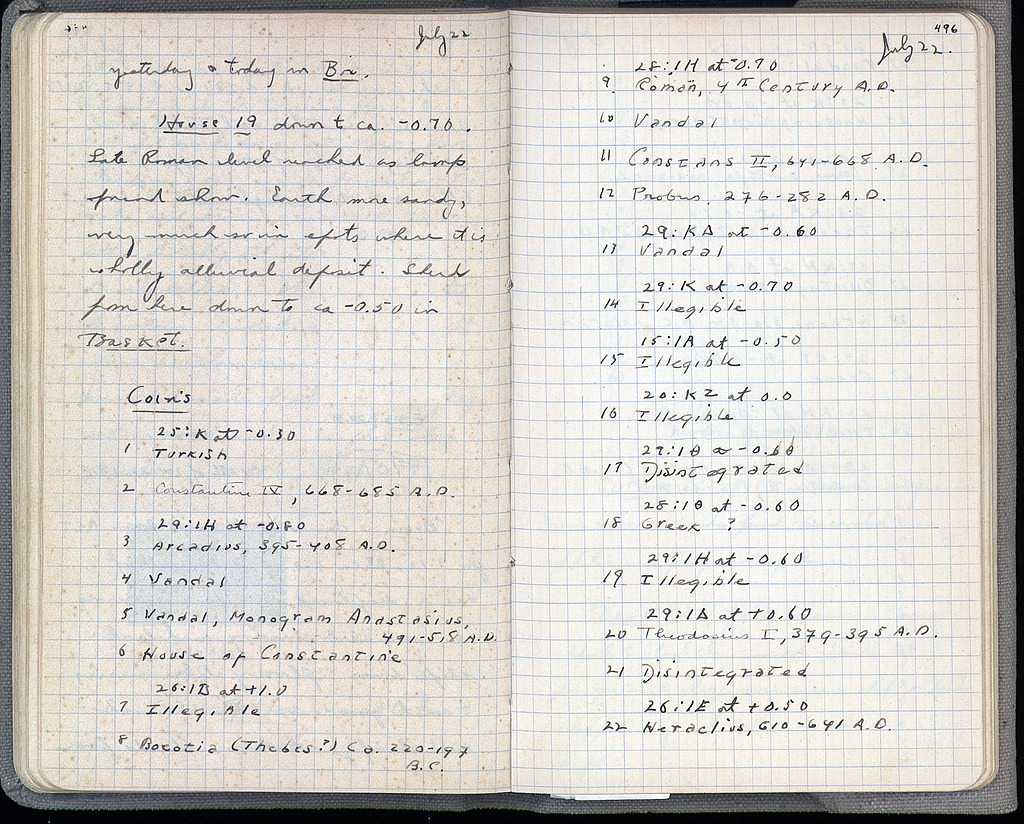 July 22
yesterday & today in Bx.
House 19 down to ca. -0.70.
Late Roman level reached as lamps
found show. Earth more sandy,
very much so in spots where it is
wholly alluvial deposit. Sherds
from here down to ca -0.50 in
Basket.
Coins
25:K at -0.30
1 Turkish
2 Constantine IV, 668-685 A.D.
29:1H at -0.80
3 Arcadius, 395-408 A.D.
4 Vandal
5 Vandal, Monogram Anastasius,
491-518 A.D.
6 House of Constantine
26:1B at +1.0
7 Illegible
8 Boeotia (Thebes?) Ca. 220-197
B.C.
496
July 22.
28:1H at -0.70
9 Roman, 4th Century A.D.
10 Vandal
11 Constans II, 641-668 A.D.
12 Probus, 276-282 A.D.
29:KΔ at -0.60
13 Vandal
29:K at -0.70
14 Illegible
15:1A at -0.50
15 Illegible
20:KZ at 0.0
16 Illegible
29:1Θ at -0.60
17 Disintegrated
28:1Θ at -0.60
18 Greek ?
29:1H at -0.60
19 Illegible
29:1Δ at +0.60
20 Theodosius I, 379-395 A.D.
21 Disintegrated
26:1E at +0.50
22 Heraclius, 610-641 A.D.